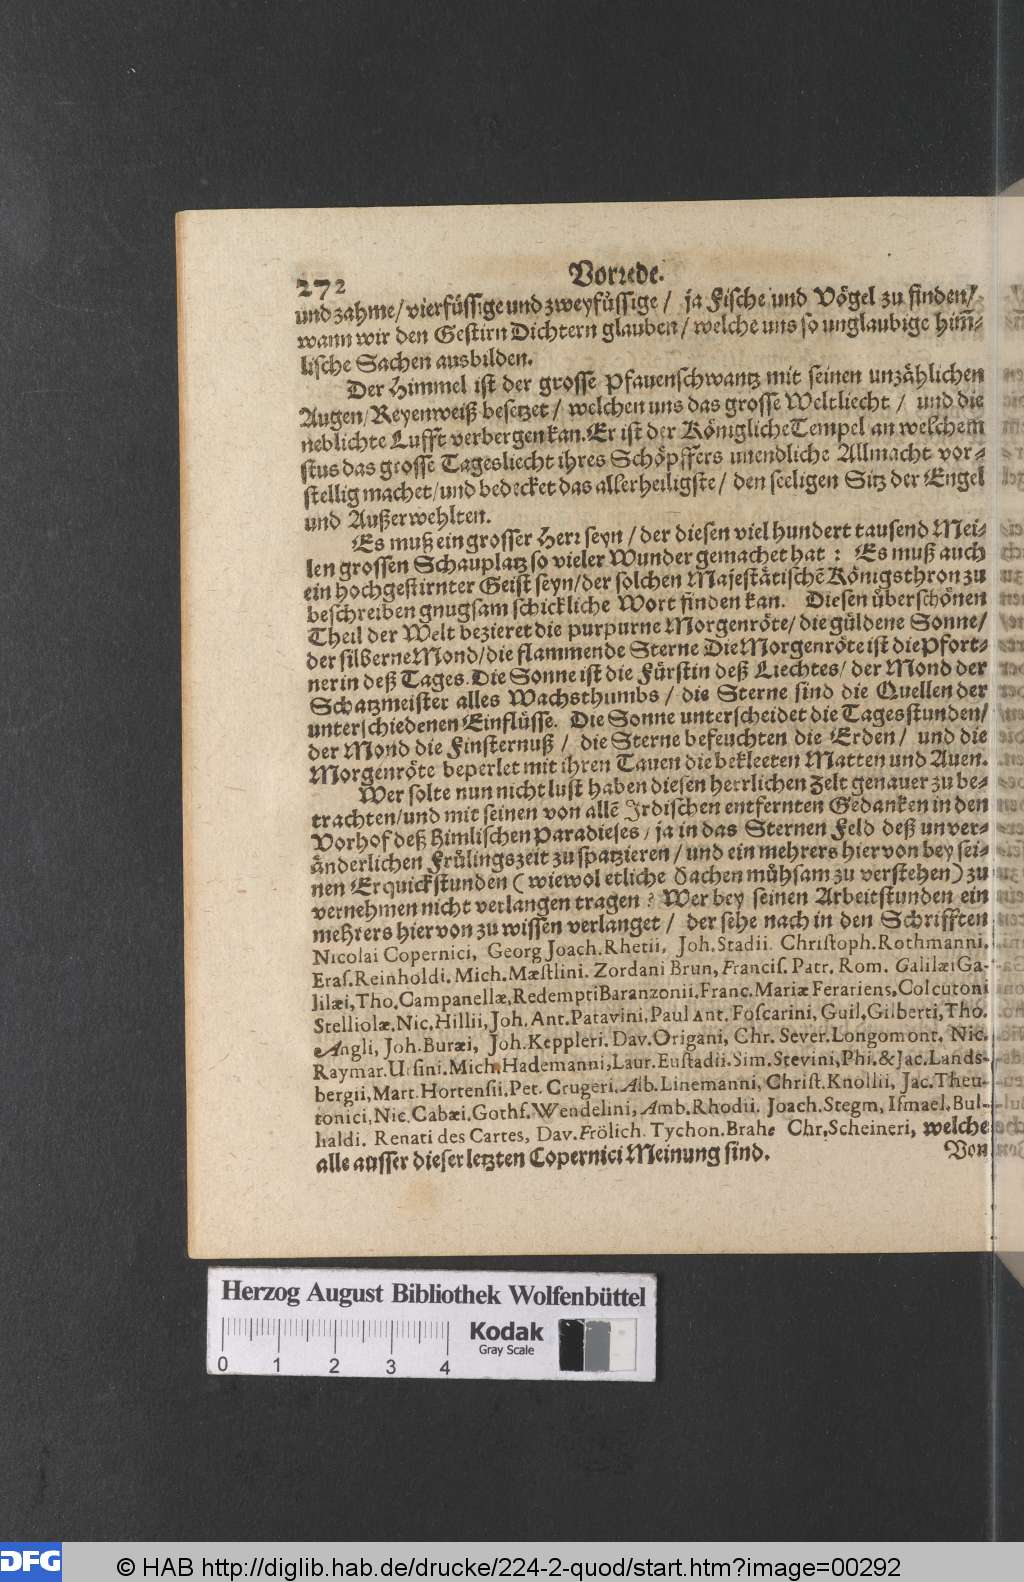 272 Vorrede.
und zahme/ vierfüssige und zweyfüssige / ja Fische und Vögel zu finden/
wann wir den Gestirn Dichtern glauben/ welche uns so unglaubige him̃-
lische Sachen ausbilden.
Der Himmel ist der grosse Pfauenschwantz mit seinen unzählichen
Augen/ Reyenweiß besetzet / welchen uns das grosse Weltliecht / und die
neblichte Lufft verbergen kan. Er ist der Königliche Tempel an welchem
stus das grosse Tagesliecht ihres Schöpffers unendliche Allmacht vor-
stellig machet/ und bedecket das allerheiligste/ den seeligen Sitz der Engel
und Außerwehlten.
Es muß ein grosser Herr seyn / der diesen viel hundert tausend Mei-
len grossen Schauplatz so vieler Wunder gemachet hat : Es muß auch
ein hochgestirnter Geist seyn/ der solchen Majestätischẽ Königsthron zu
beschreiben gnugsam schickliche Wort finden kan. Diesen überschönen
Theil der Welt bezieret die purpurne Morgenröte/ die güldene Sonne/
der silberne Mond/ die flammende Sterne Die Morgenröte ist die Pfort-
nerin deß Tages. Die Sonne ist die Fürstin deß Liechtes/ der Mond der
Schatzmeister alles Wachsthumbs / die Sterne sind die Quellen der
unterschiedenen Einflüsse. Die Sonne unterscheidet die Tagesstunden/
der Mond die Finsternuß / die Sterne befeuchten die Erden/ und die
Morgenröte beperlet mit ihren Tauen die bekleeten Matten und Auen.
Wer solte nun nicht lust haben diesen herrlichen Zelt genauer zu be-
trachten/ und mit seinen von allẽ Irdischen entfernten Gedanken in den
Vorhof deß Himlischen Paradieses/ ja in das Sternen Feld deß unver-
änderlichen Frülingszeit zu spatzieren / und ein mehrers hiervon bey sei-
nen Erquickstunden ( wiewol etliche Sachen mühsam zu verstehen) zu
vernehmen nicht verlangen tragen? Wer bey seinen Arbeitstunden ein
mehrers hiervon zu wissen verlanget/ der sehe nach in den Schrifften
Nicolai Copernici, Georg Joach. Rhetii, Joh. Stadii. Christoph. Rothmanni,
Eras. Reinholdi. Mich. Mæstlini. Zordani Brun, Francis. Patr. Rom. Galilæi Ga-
lilæi, Tho. Campanellæ, Redempti Baranzonii, Franc. Mariæ Ferariens, Colcutoni
Stelliolæ, Nic. Hillii, Joh. Ant. Patavini, Paul Ant. Foscarini, Guil. Gilberti, Tho.
Angli, Joh. Buræi, Joh. Keppleri. Dav. Origani, Chr. Sever. Longomont. Nic.
Raymar. Ursini. Mich. Hademanni, Laur. Eustadii. Sim. Stevini, Phi. & Jac. Lands-
bergii, Mart. Hortensii, Pet. Crugeri. Alb. Linemanni, Christ. Knollii, Jac. Theu-
tonici, Nic. Cabæi. Gothf. Wendelini, Amb. Rhodii. Joach. Stegm, Ismael. Bul-
haldi. Renati des Cartes, Dav. Frölich. Tychon. Brahe Chr. Scheineri, welche
alle ausser dieser letzten Copernici Meinung sind.
Von
Herzog August Bibliothek Wolfenbüttel
Kodak
Gray Scale
0 1 2 3 4
DFG © HAB http://diglib.hab.de/drucke/224-2-quod/start.htm?image=00292